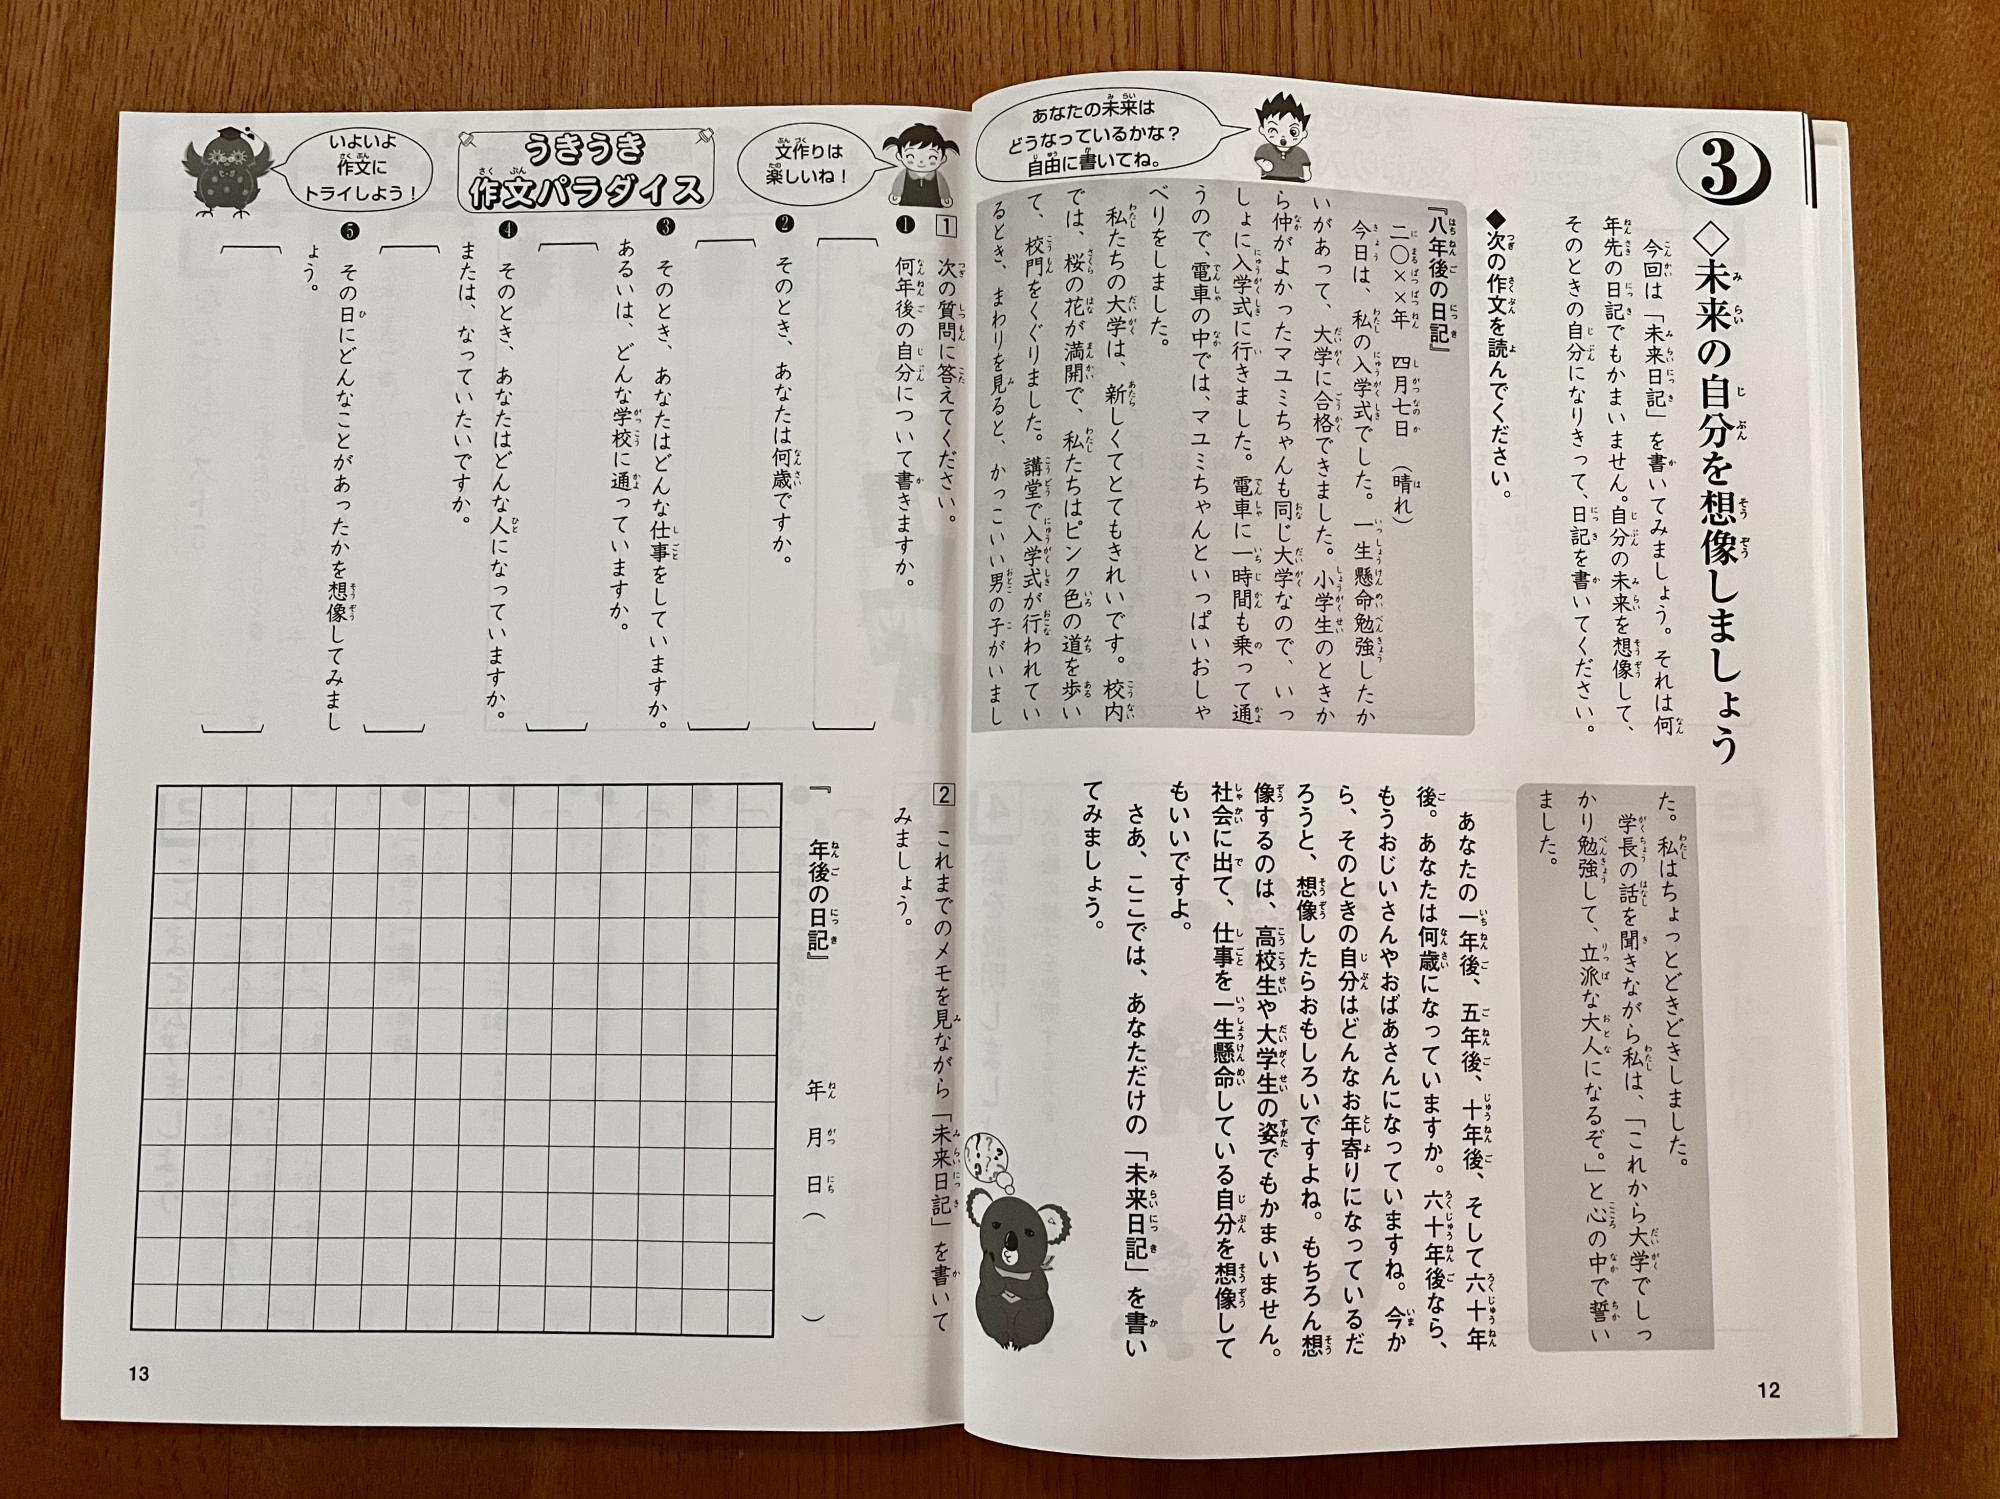 3
◇未来の自分を想像しましょう
今回は「未来日記」を書いてみましょう。それは何
年先の日記でもかまいません。自分の未来を想像して、
そのときの自分になりきって、日記を書いてください。
◆次の作文を読んでください。
あなたの未来は
どうなっているかな？
自由に書いてね。
『八年後の日記』
二〇××年　四月七日　（晴れ）
今日は、私の入学式でした。一生懸命勉強したか
いがあって、大学に合格できました。小学生のときか
ら仲がよかったマユミちゃんも同じ大学なので、いっ
しょに入学式に行きました。電車に一時間も乗って通
うので、電車の中では、マユミちゃんといっぱいおしゃ
べりをしました。
私たちの大学は、新しくてとてもきれいです。校内
では、桜の花が満開で、私たちはピンク色の道を歩い
て、校門をくぐりました。講堂で入学式が行われてい
るとき、まわりを見ると、かっこいい男の子がいまし
た。私はちょっとどきどきしました。
学長の話を聞きながら私は、「これから大学でしっ
かり勉強して、立派な大人になるぞ。」と心の中で誓い
ました。
あなたの一年後、五年後、十年後、そして六十年
後。あなたは何歳になっていますか。六十年後なら、
もうおじいさんやおばあさんになっていますね。今か
ら、そのときの自分はどんなお年寄りになっているだ
ろうと、想像したらおもしろいですよね。もちろん想
像するのは、高校生や大学生の姿でもかまいません。
社会に出て、仕事を一生懸命している自分を想像して
もいいですよ。
さあ、ここでは、あなただけの「未来日記」を書い
てみましょう。
12
文作りは
楽しいね！
うきうき
作文パラダイス
いよいよ
作文に
トライしよう！
1　次の質問に答えてください。
❶　何年後の自分について書きますか。
❷　そのとき、あなたは何歳ですか。
❸　そのとき、あなたはどんな仕事をしていますか。
あるいは、どんな学校に通っていますか。
❹　そのとき、あなたはどんな人になっていますか。
または、なっていたいですか。
❺　その日にどんなことがあったかを想像してみまし
ょう。
2　これまでのメモを見ながら「未来日記」を書いて
みましょう。
『　年後の日記』　年　月　日（　）
13